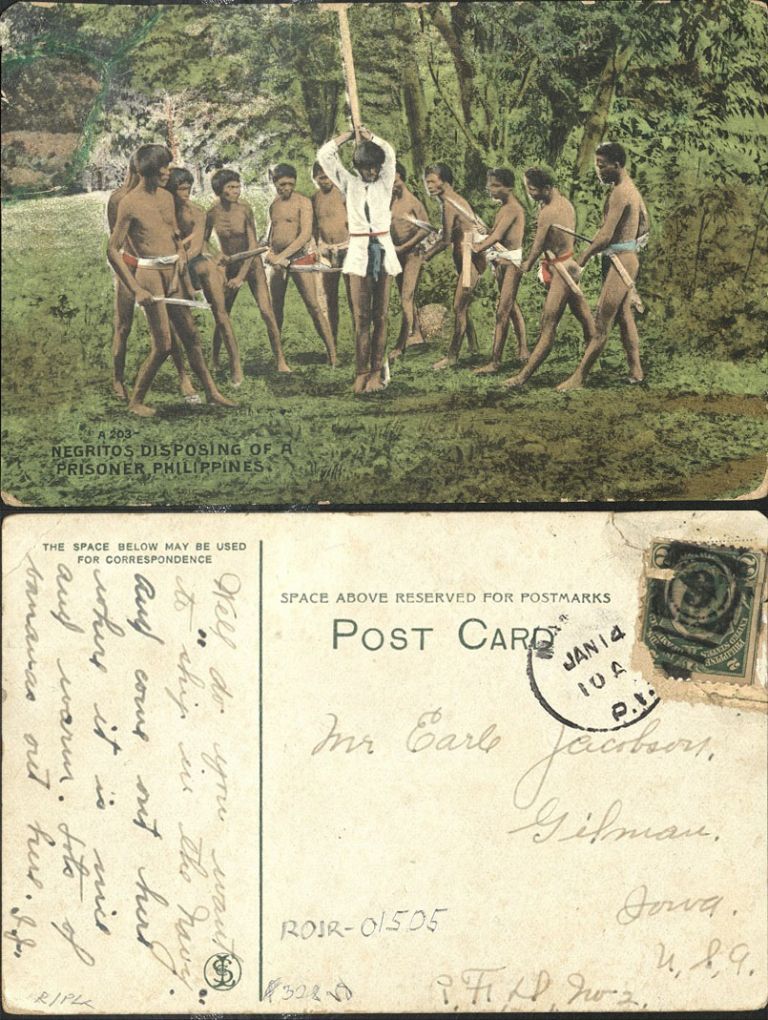 A 203-
NEGRITOS DISPOSING OF A
PRISONER PHILIPPINES.
THE SPACE BELOW MAY BE USED
FOR CORRESPONDENCE
SPACE ABOVE RESERVED FOR POSTMARKS
POST CARD
JAN 14
10 A
P.I.
2
PHILIPPINE
Well do you want
to "ship in the Navy"
and come out here
where it is nice
and warm. Lots of
bananas out here.
Mr Earle Jacobson,
Gilman.
Iowa.
U.S.A.
R.F.D. No 2.
ROIR-01505